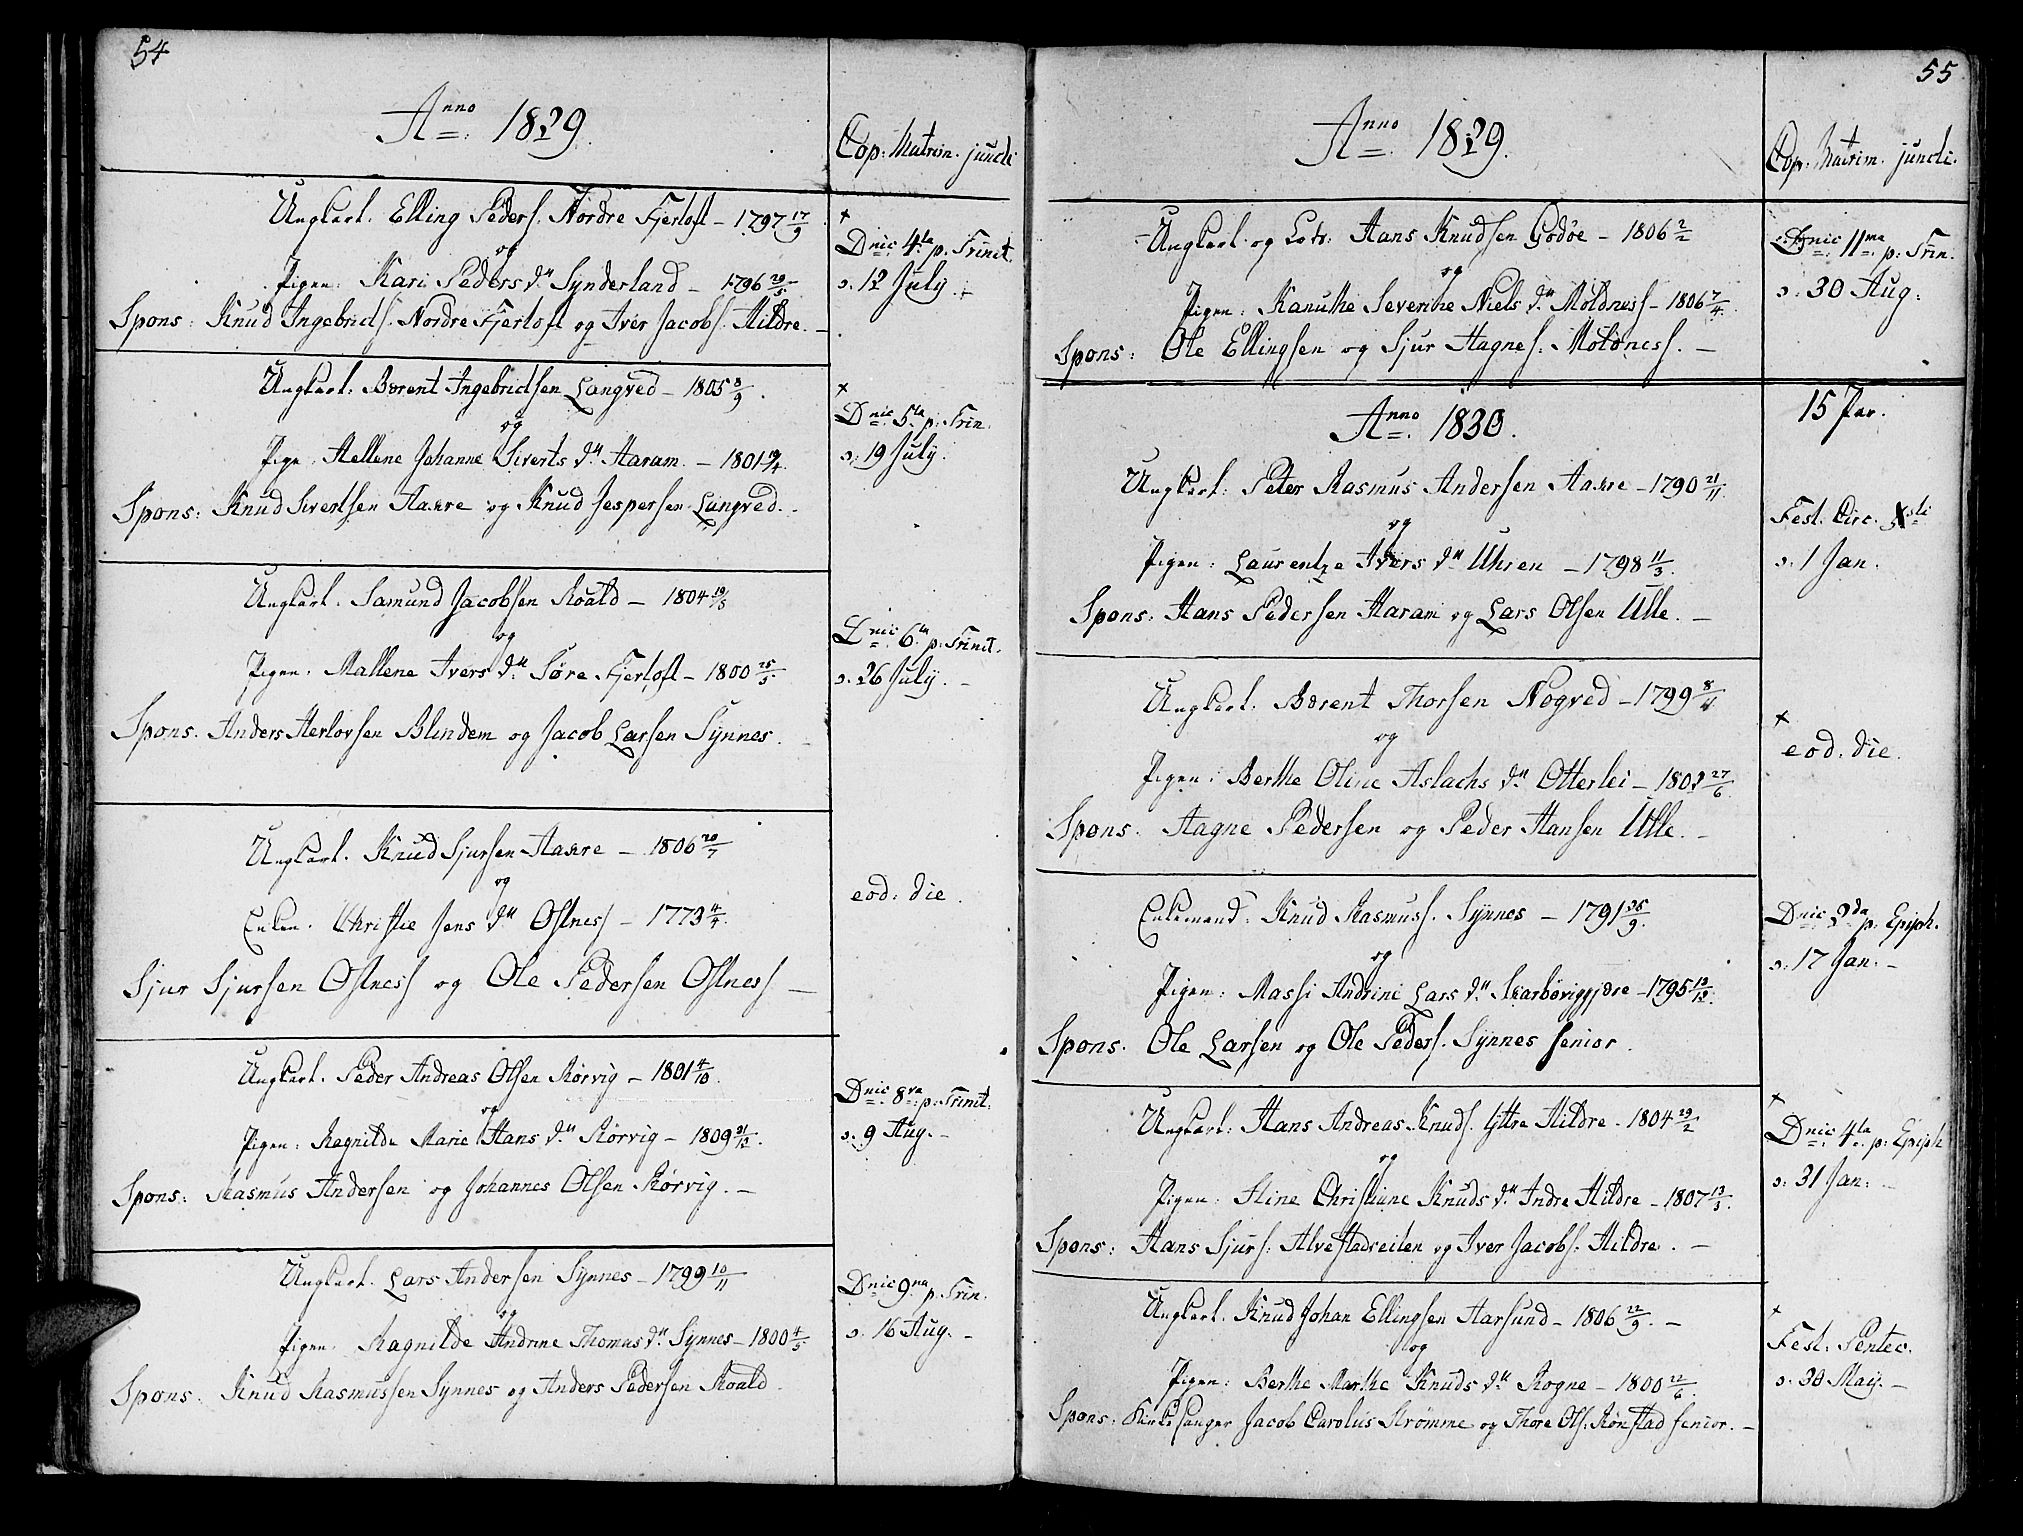 54
Anno 1829.
Cop: Matrim. juncti
Ungkarl. Elling Peders. Nordre Fjertoft - 1797 17/9
og
Pigen: Kari Peders Dr Synderland - 1796 29/5
Spons: Knud Ingebricts. Nordre Fjertoft og Iver Jacobs. Hildre. -
+
Dnic 4ta p. Trinit.
s. 12 July. -
Ungkarl. Bærent Ingebrictsen Langved - 1805 8/9.
og
Pige. Hellene Johanne Siverts Dr Haram. - 1801
Spons: Knud Sivertsen Aakre og Knud Jespersen Langved.
+
Dnic 5ta p: Trin.
s: 19 July.
Ungkarl. Samund Jacobsen Roald - 1804 19/5
og
Pigen: Mallene Ivers Dr Søre Fjertoft - 1800 25/5.
Spons. Anders Herlovsen Blindem og Jacob Larsen Synnes.
Dnic 6ta p: Trinit.
s. 26 July. -
Ungkarl. Knud Sjursen Aakre - 1806 20/7
og
Enken. Christie Jens Dr Ostness - 1773 4/4.
Sjur Sjursen Ostness og Ole Pedersen Ostness -
eod: die.
Ungkarl. Peder Andreas Olsen Rørvig - 1801 4/10.
og
Pigen: Ragnilda Marie Hans Dr Rørvig - 1809 21/12.
Spons: Rasmus Andersen og Johannes Olsen Rørvig. -
Dnic 8va p: Trinit:
s. 9 Aug. -
Ungkarl. Lars Andersen Synnes - 1799 10/11
og
Pigen. Ragnilde Andrine Thomas Dr Synnes - 1800 4/5
Spons. Knud Rasmussen Synnes og Anders Pedersen Roald.
Dnic 9na p. Trin.
s. 16 Aug. -
55
Anno 1829.
Cop: Matrim. juncti.
Ungkarl og Lods: Hans Knudsen Godøe - 1806 2/2
og
Pigen: Kanutke Severine Niels Dr Moldness - 1806 7/4.
Spons: Ole Ellingsen og Sjur Hagnes: Moldness. -
Dnic 11ma p: Trin.
s: 30 Aug:
15 Par.
Anno 1830.
Ungkarl: Peter Rasmus Andersen Aakre - 1790 21/11.
og
Pigen: Laurentze Ivers Dr Uhren - 1798 11/3.
Spons: Hans Pedersen Haram og Lars Olsen Ulle. -
Fest. Circ. Xsti
s. 1 Jan.
Ungkarl. Bærent Thorsen Nogved - 1799
og
Pigen: Berthe Oline Aslachs Dr Otterlei - 1802 27/6.
Spons. Hagne Pedersen og Peder Hansen Ulle. -
+
eod. die.
Enkemand: Knud Rasmuss. Synnes - 1791 /9.
og
Pigen: Massi Andrine Lars Dr Skarbøviggjære - 1795 13/12.
Spons. Ole Larsen og Ole Peders. Synnes senior.
Dnic 2da p: Epiph.
s: 17 Jan. -
Ungkarl: Hans Andreas Knuds. Yttre Hildre. 1804 29/2
og
Pigen: Stine Christiane Knuds Dr Indre Hildre - 1807 13/3.
Spons: Hans Sjurs: Alvestadreiten og Iver Jacobs. Hildre. -
+
Dnic 4ta p: Epiph
s: 31 Jan: -
Ungkarl. Knud Johan Ellingsen Aarsund - 1806 22/9. -
og
Pigen: Berthe Marthe Knuds Dr Rogne - 1800 22/6.
Spons: Kirkesanger Jacob Carolus Strømme og Thore Ols: Rønstad senior. -
+
Fest: Pentec.
s. 30 Maij. -